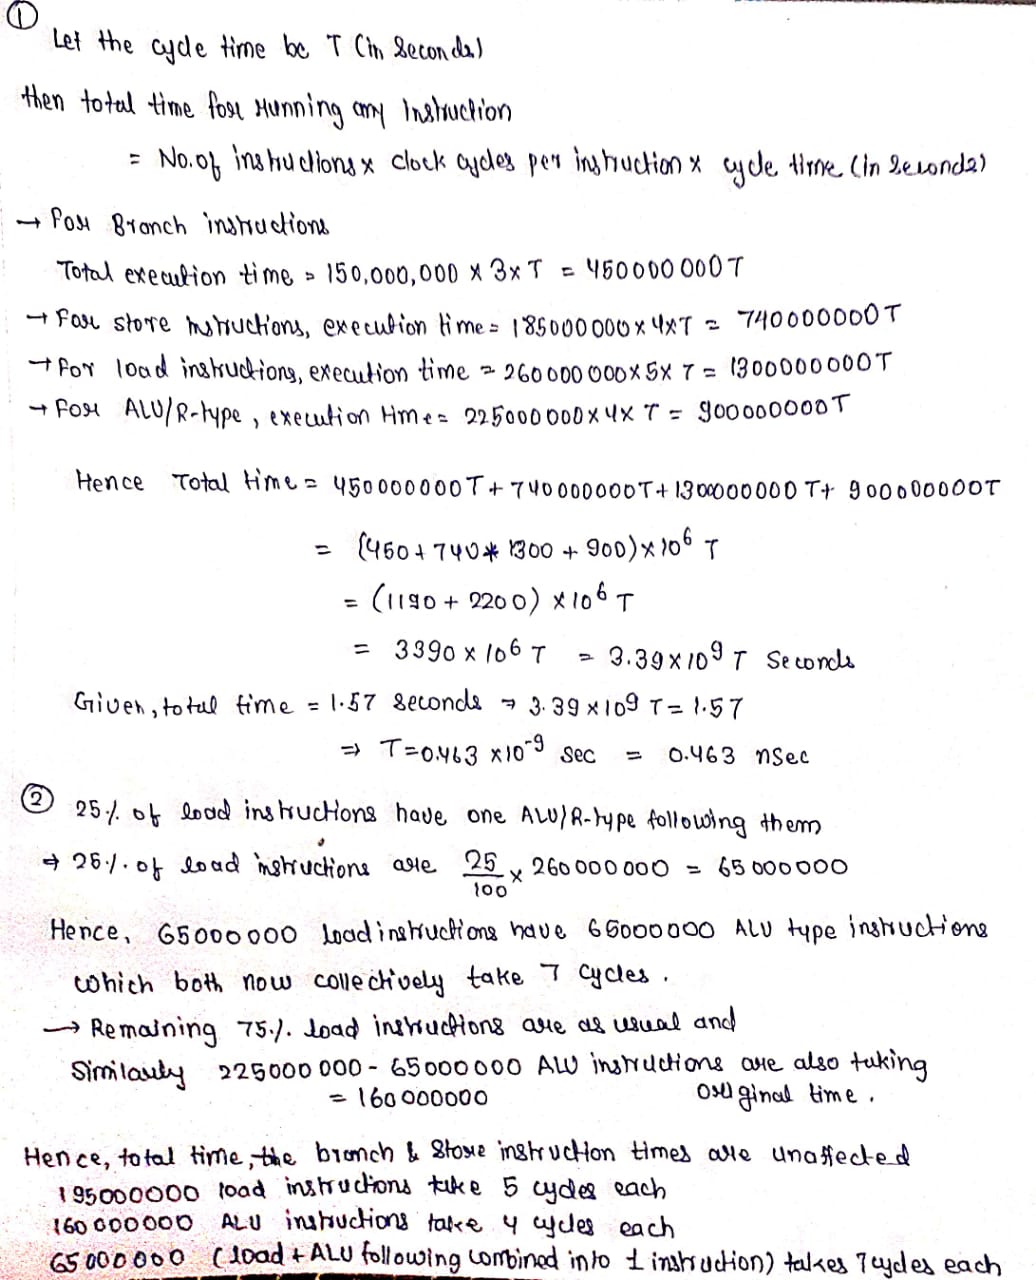 ①
Let the cycle time be T (in Seconds)
then total time for running any Instruction
= No. of instructions x clock cycles per instruction x cycle time (in seconds)
→ For Branch instructions
Total execution time = 150,000,000 x 3 x T = 450000 000T
→ For store instructions, execution time = 185000 000 x 4xT = 740000000T
→ For load instructions, execution time = 260 000 000 x 5x T = 1300000 000T
→ For ALU/R-type, execution time = 225000 000 x 4 x T = 900000000T
Hence Total time = 450 000000T + 740 000000T + 1300000000 T + 900000000T
= (450 + 740 * 1300 + 900) x 10⁶ T
= (1190 + 2200) x 10⁶ T
= 3390 x 10⁶ T = 3.39 x 10⁹ T Seconds
Given, total time = 1.57 seconds → 3.39 x 10⁹ T = 1.57
⇒ T = 0.463 x 10⁻⁹ sec = 0.463 nsec
②
25% of load instructions have one ALU/R-type following them
⇒ 25% of load instructions are 25/100 x 260 000 000 = 65 000000
Hence, 65000000 load instructions have 65000000 ALU type instructions
which both now collectively take 7 cycles.
→ Remaining 75% load instructions are as usual and
Similarly 225000 000 - 65000000 ALU instructions are also taking
= 160 000000 original time.
Hence, total time, the branch & Store instruction times are unaffected
195000000 load instructions take 5 cycles each
160 000000 ALU instructions take 4 cycles each
65 000 000 (load + ALU following combined into 1 instruction) takes 7 cycles each